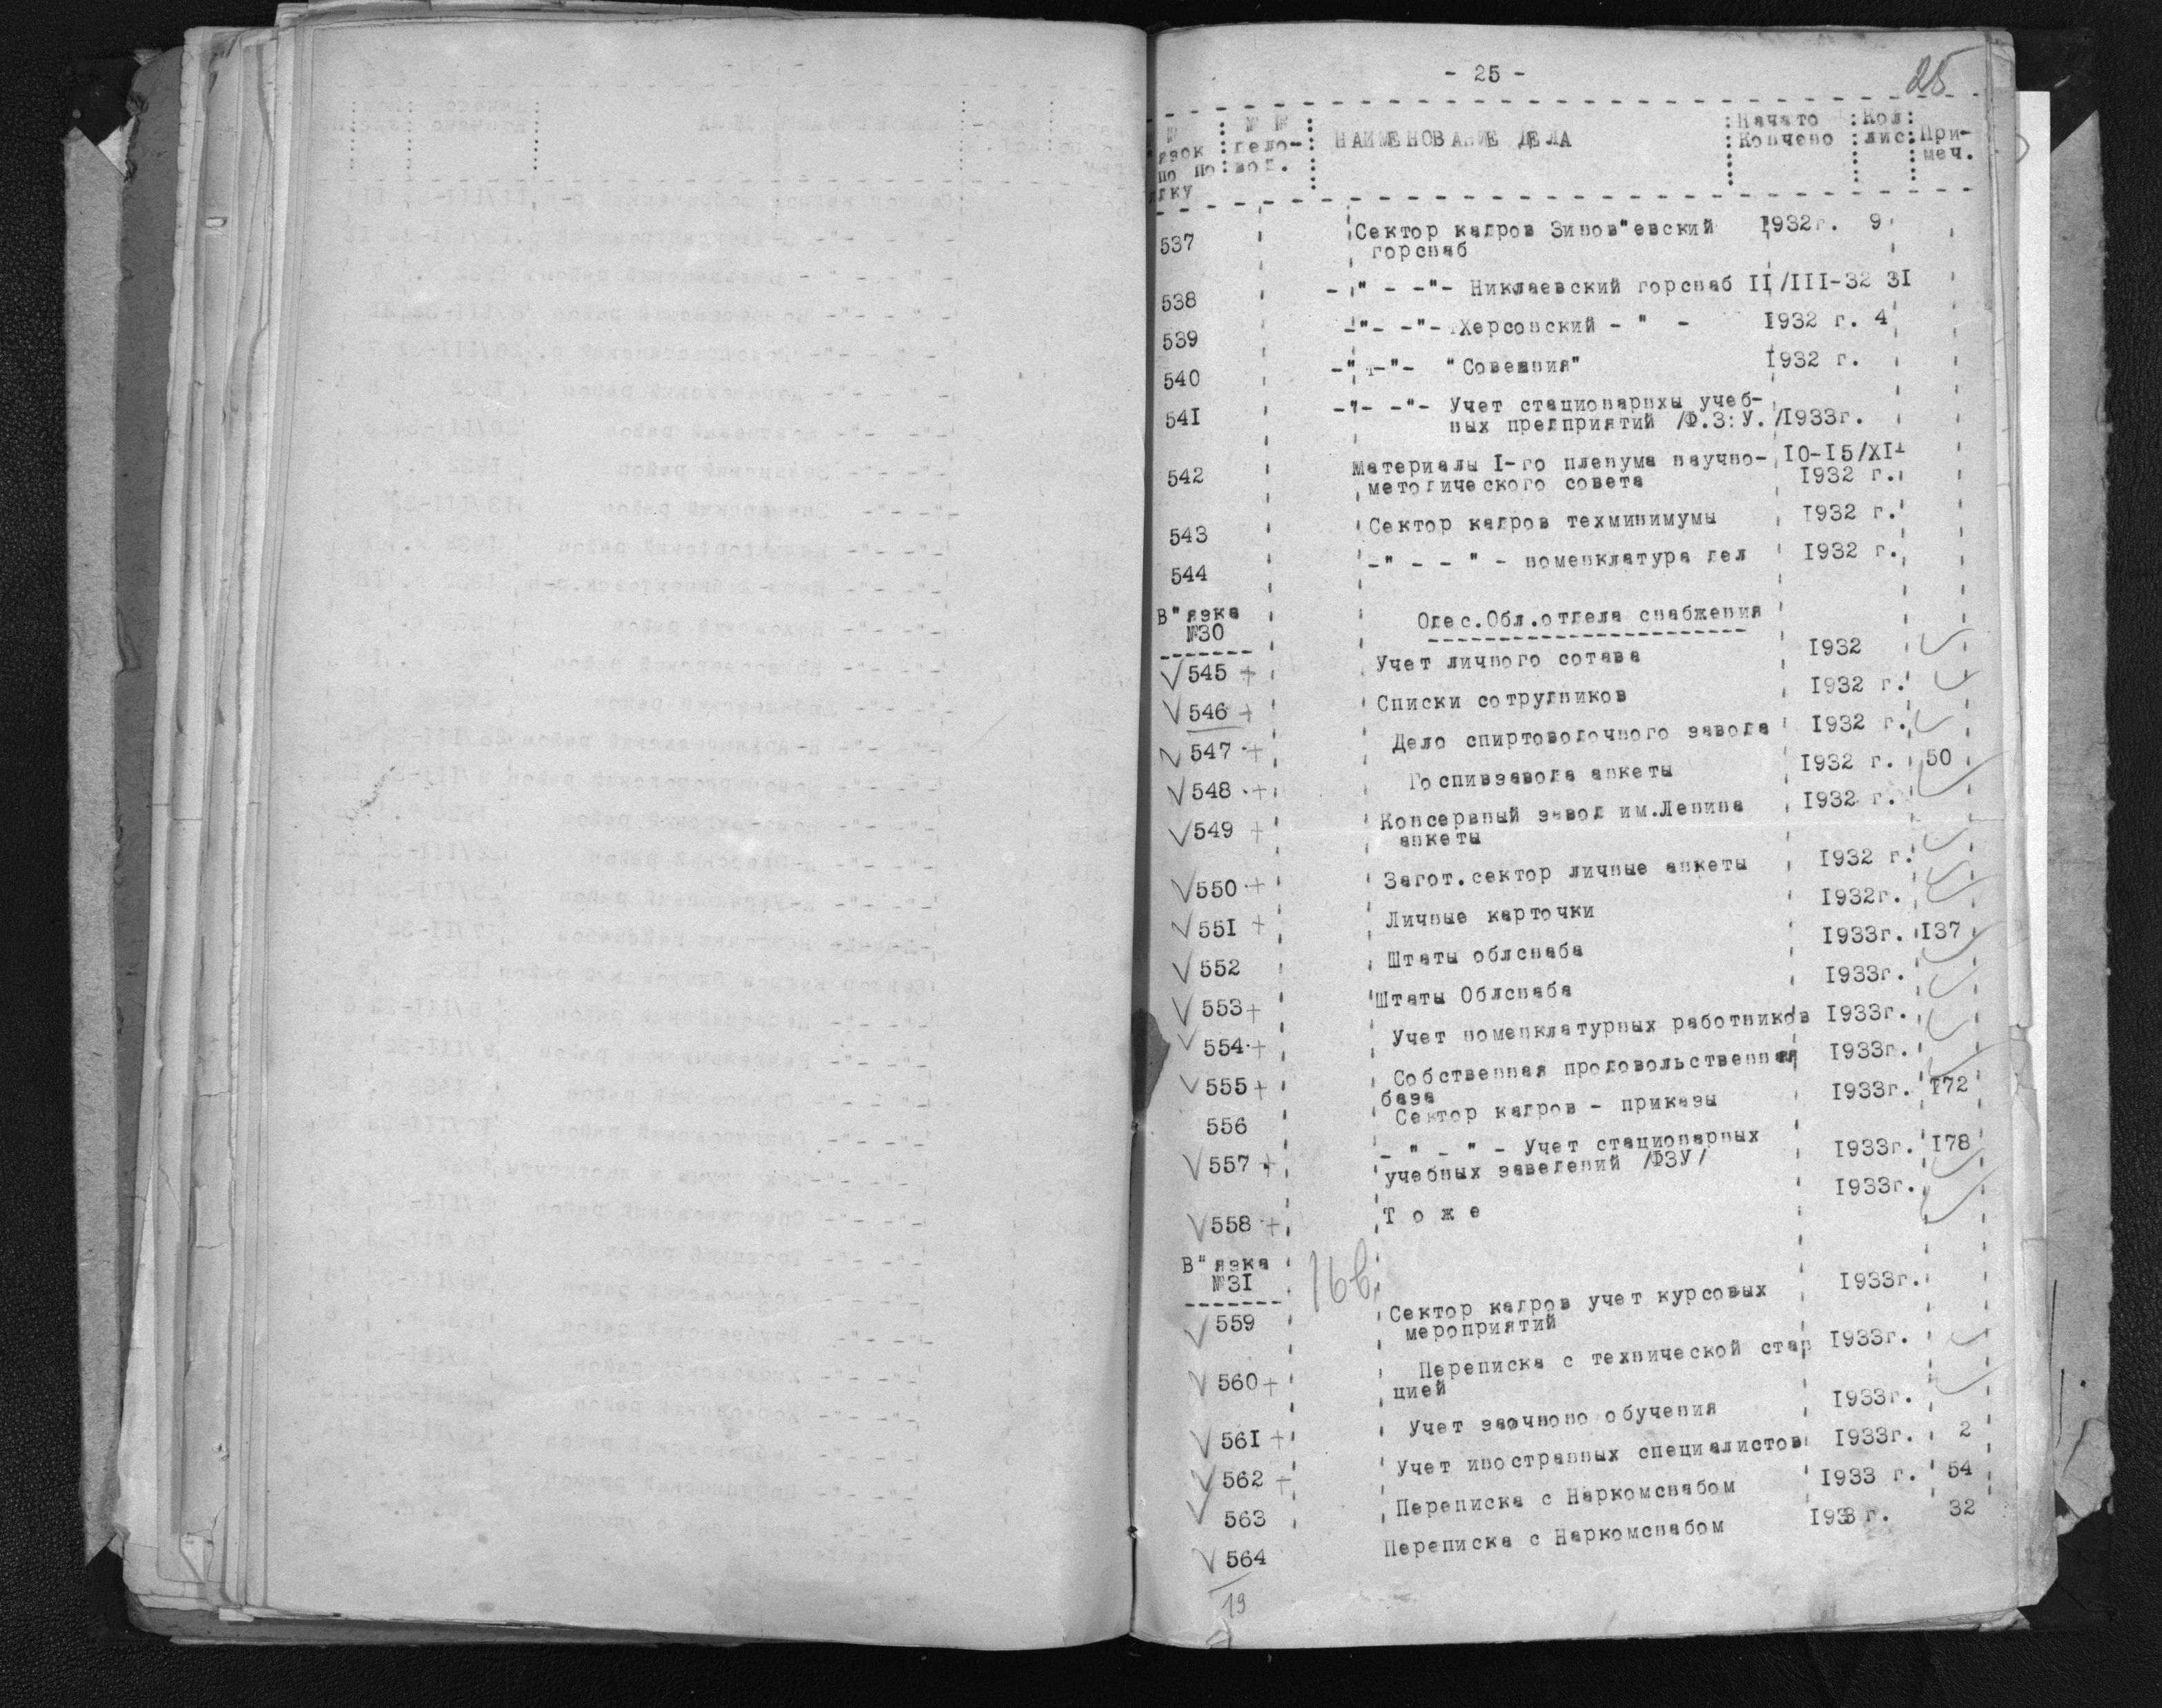 - 25 -
25
№ : № № : НАИМЕНОВАНИЕ ДЕЛА : Начато : Кол : При-
язок : дело- : Кончено : лис : меч.
по по : вод.
ядку
537 Сектор кадров Зинов"евский 1932г. 9
горснаб
538 -"- -"- Никлаевский горснаб II/III-32 31
539 -"- -"- Херсонский - " - 1932 г. 4
540 -"- -"- "Совещния" 1932 г.
541 -"- -"- Учет стационарнхы учеб-
ных предприятий /Ф.З:У./1933г.
542 Материалы I-го пленума научно- 10-15/XI
методического совета 1932 г.
543 Сектор кадров техминимумы 1932 г.
544 -"- - " - номенклатура дел 1932 г.
В"язка
№30
Одес.Обл.отдела снабжения
545 + Учет личного сотава 1932
546 + Списки сотрудников 1932 г.
547 + Дело спиртоводочного завода 1932 г.
548 + Госпивзавода анкеты 1932 г. 50
549 + Консервный завод им.Ленина 1932 г.
анкеты
550 + Загот.сектор личные анкеты 1932 г.
551 + Личные карточки 1932г.
552 Штаты облснаба 1933г. 137
553 + Штаты Облснаба 1933г.
554 + Учет номенклатурных работников 1933г.
555 + Собственная продовольственная 1933г.
база
556 Сектор кадров - приказы 1933г. 172
557 + - " - " - Учет стационарных 1933г. 178
учебных заведений /ФЗУ/
558 + Т о ж е 1933г.
В"язка
№31
16в
559 Сектор кадров учет курсовых 1933г.
мероприятий
560 + Переписка с технической стар 1933г.
цией
561 + Учет заочного обучения 1933г.
562 + Учет иностранных специалистов 1933г. 2
563 Переписка с Наркомснабом 1933 г. 54
564 Переписка с Наркомснабом 1933 г. 32
19